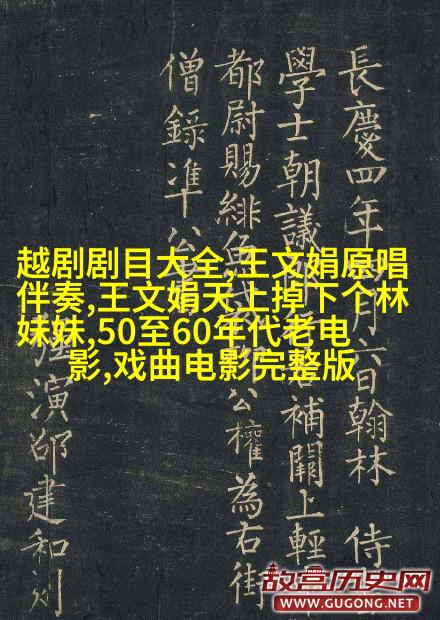 越剧剧目大全,王文娟原唱
伴奏,王文娟天上掉下个林
妹妹,50至60年代老电
影,戏曲电影完整版
長慶四年月六日翰林侍
學士朝議補闕上輕
都尉賜緋公權為右街
僧錄准公
強演邵建和刻
故宫历史网
WWW.GUGONG.NET